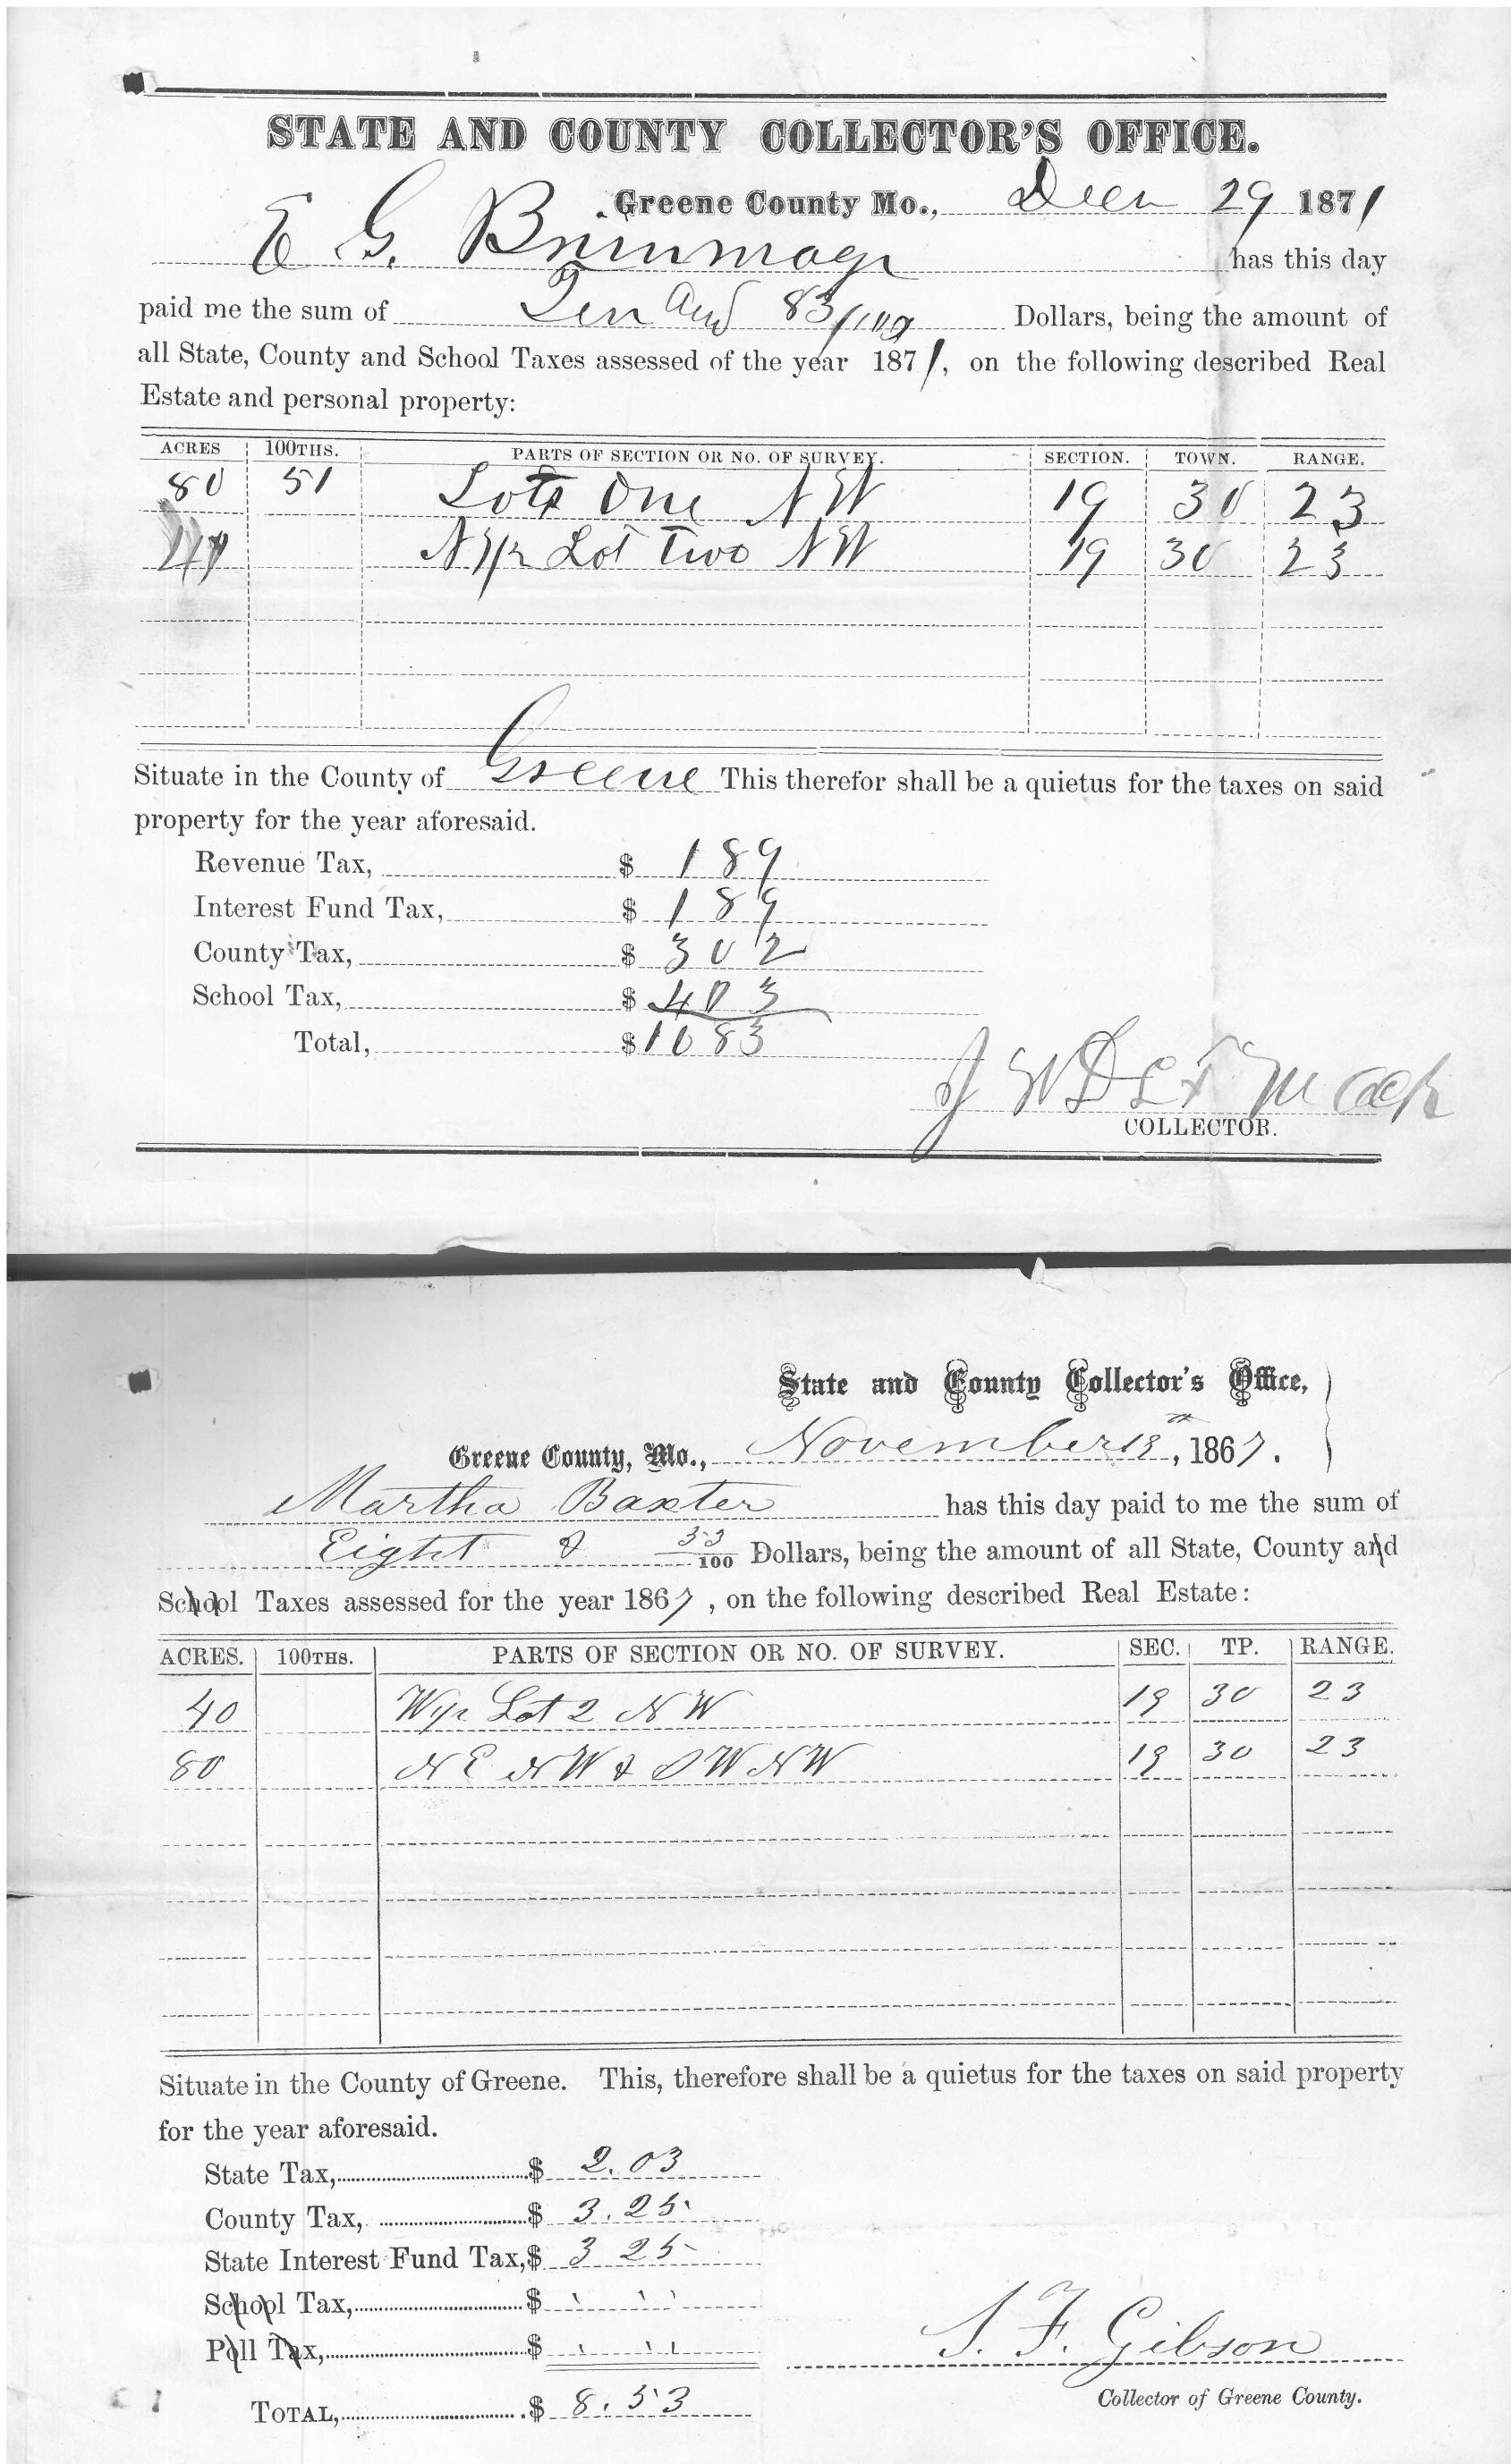 STATE AND COUNTY COLLECTOR'S OFFICE.
Greene County Mo., Decr 29 1871
E G. Brummage has this day
paid me the sum of Ten and 83/100 Dollars, being the amount of
all State, County and School Taxes assessed of the year 1871, on the following described Real
Estate and personal property:
ACRES 100THS. PARTS OF SECTION OR NO. OF SURVEY. SECTION. TOWN. RANGE.
80 51 Lot One NW 19 30 23
N 1/2 Lot Two NW 19 30 23
Situate in the County of Greene This therefor shall be a quietus for the taxes on said
property for the year aforesaid.
Revenue Tax, $ 1 89
Interest Fund Tax, $ 1 89
County Tax, $ 3 02
School Tax, $ 4 03
Total, $ 10 83
COLLECTOR.
State and County Collector's Office,
Greene County, Mo., November 13th, 1867.
Martha Baxter has this day paid to me the sum of
Eight & 53/100 Dollars, being the amount of all State, County and
School Taxes assessed for the year 1867, on the following described Real Estate:
ACRES. 100THS. PARTS OF SECTION OR NO. OF SURVEY. SEC. TP. RANGE.
40 W 1/2 Lot 2 NW 19 30 23
80 NE NW & SW NW 19 30 23
Situate in the County of Greene. This, therefore shall be a quietus for the taxes on said property
for the year aforesaid.
State Tax, $ 2.03
County Tax, $ 3.25
State Interest Fund Tax, $ 3 25
School Tax, $
Poll Tax, $
TOTAL, $ 8.53
S. F. Gibson
Collector of Greene County.